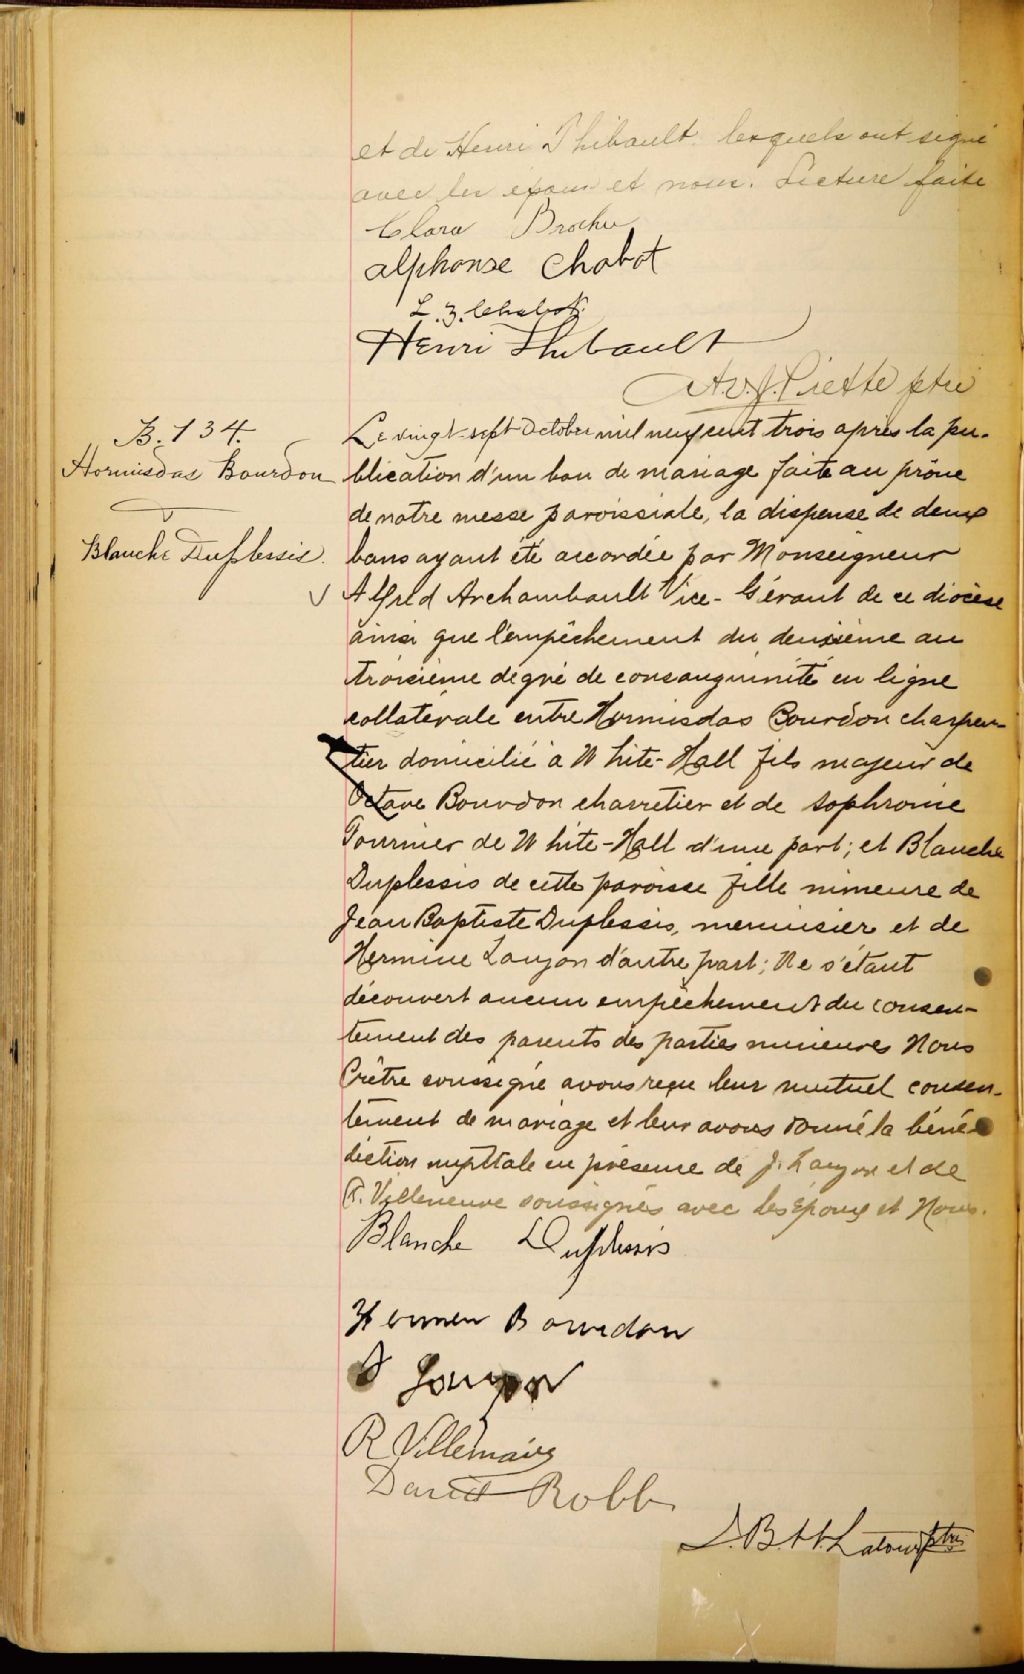 et de Henri Thibault lesquels ont signé
avec les époux et nous. Lecture faite
Clara Brochu
Alphonse Chabot
L. Z. Chabot
Henri Thibault
Piette ptre
B. 134.
Hormisdas Bourdon
Blanche Duplessis.
Le vingt-sept Octobre mil neuf cent trois après la pu-
blication d'un ban de mariage faite au prône
de notre messe paroissiale, la dispense de deux
bans ayant été accordée par Monseigneur
Alfred Archambault Vice-Gérant de ce diocèse
ainsi que l'empêchement du deuxième au
troisième degré de consanguinité en ligne
collatérale entre Hormisdas Bourdon charpen-
tier domicilié à White-Hall fils majeur de
Octave Bourdon charretier et de Sophronie
Fournier de White-Hall d'une part; et Blanche
Duplessis de cette paroisse fille mineure de
Jean Baptiste Duplessis, menuisier et de
Hermine d'autre part; Ne s'étant
découvert aucun empêchement du consen-
tement des parents des parties mineures Nous
Prêtre soussigné avons reçu leur mutuel consen-
tement de mariage et leur avons donné la béné-
diction nuptiale en présence de J. et de
R. Villeneuve soussignés avec les époux et Nous.
Blanche Duplessis
Bourdon
R Villemaire
David Robb
Latour ptre